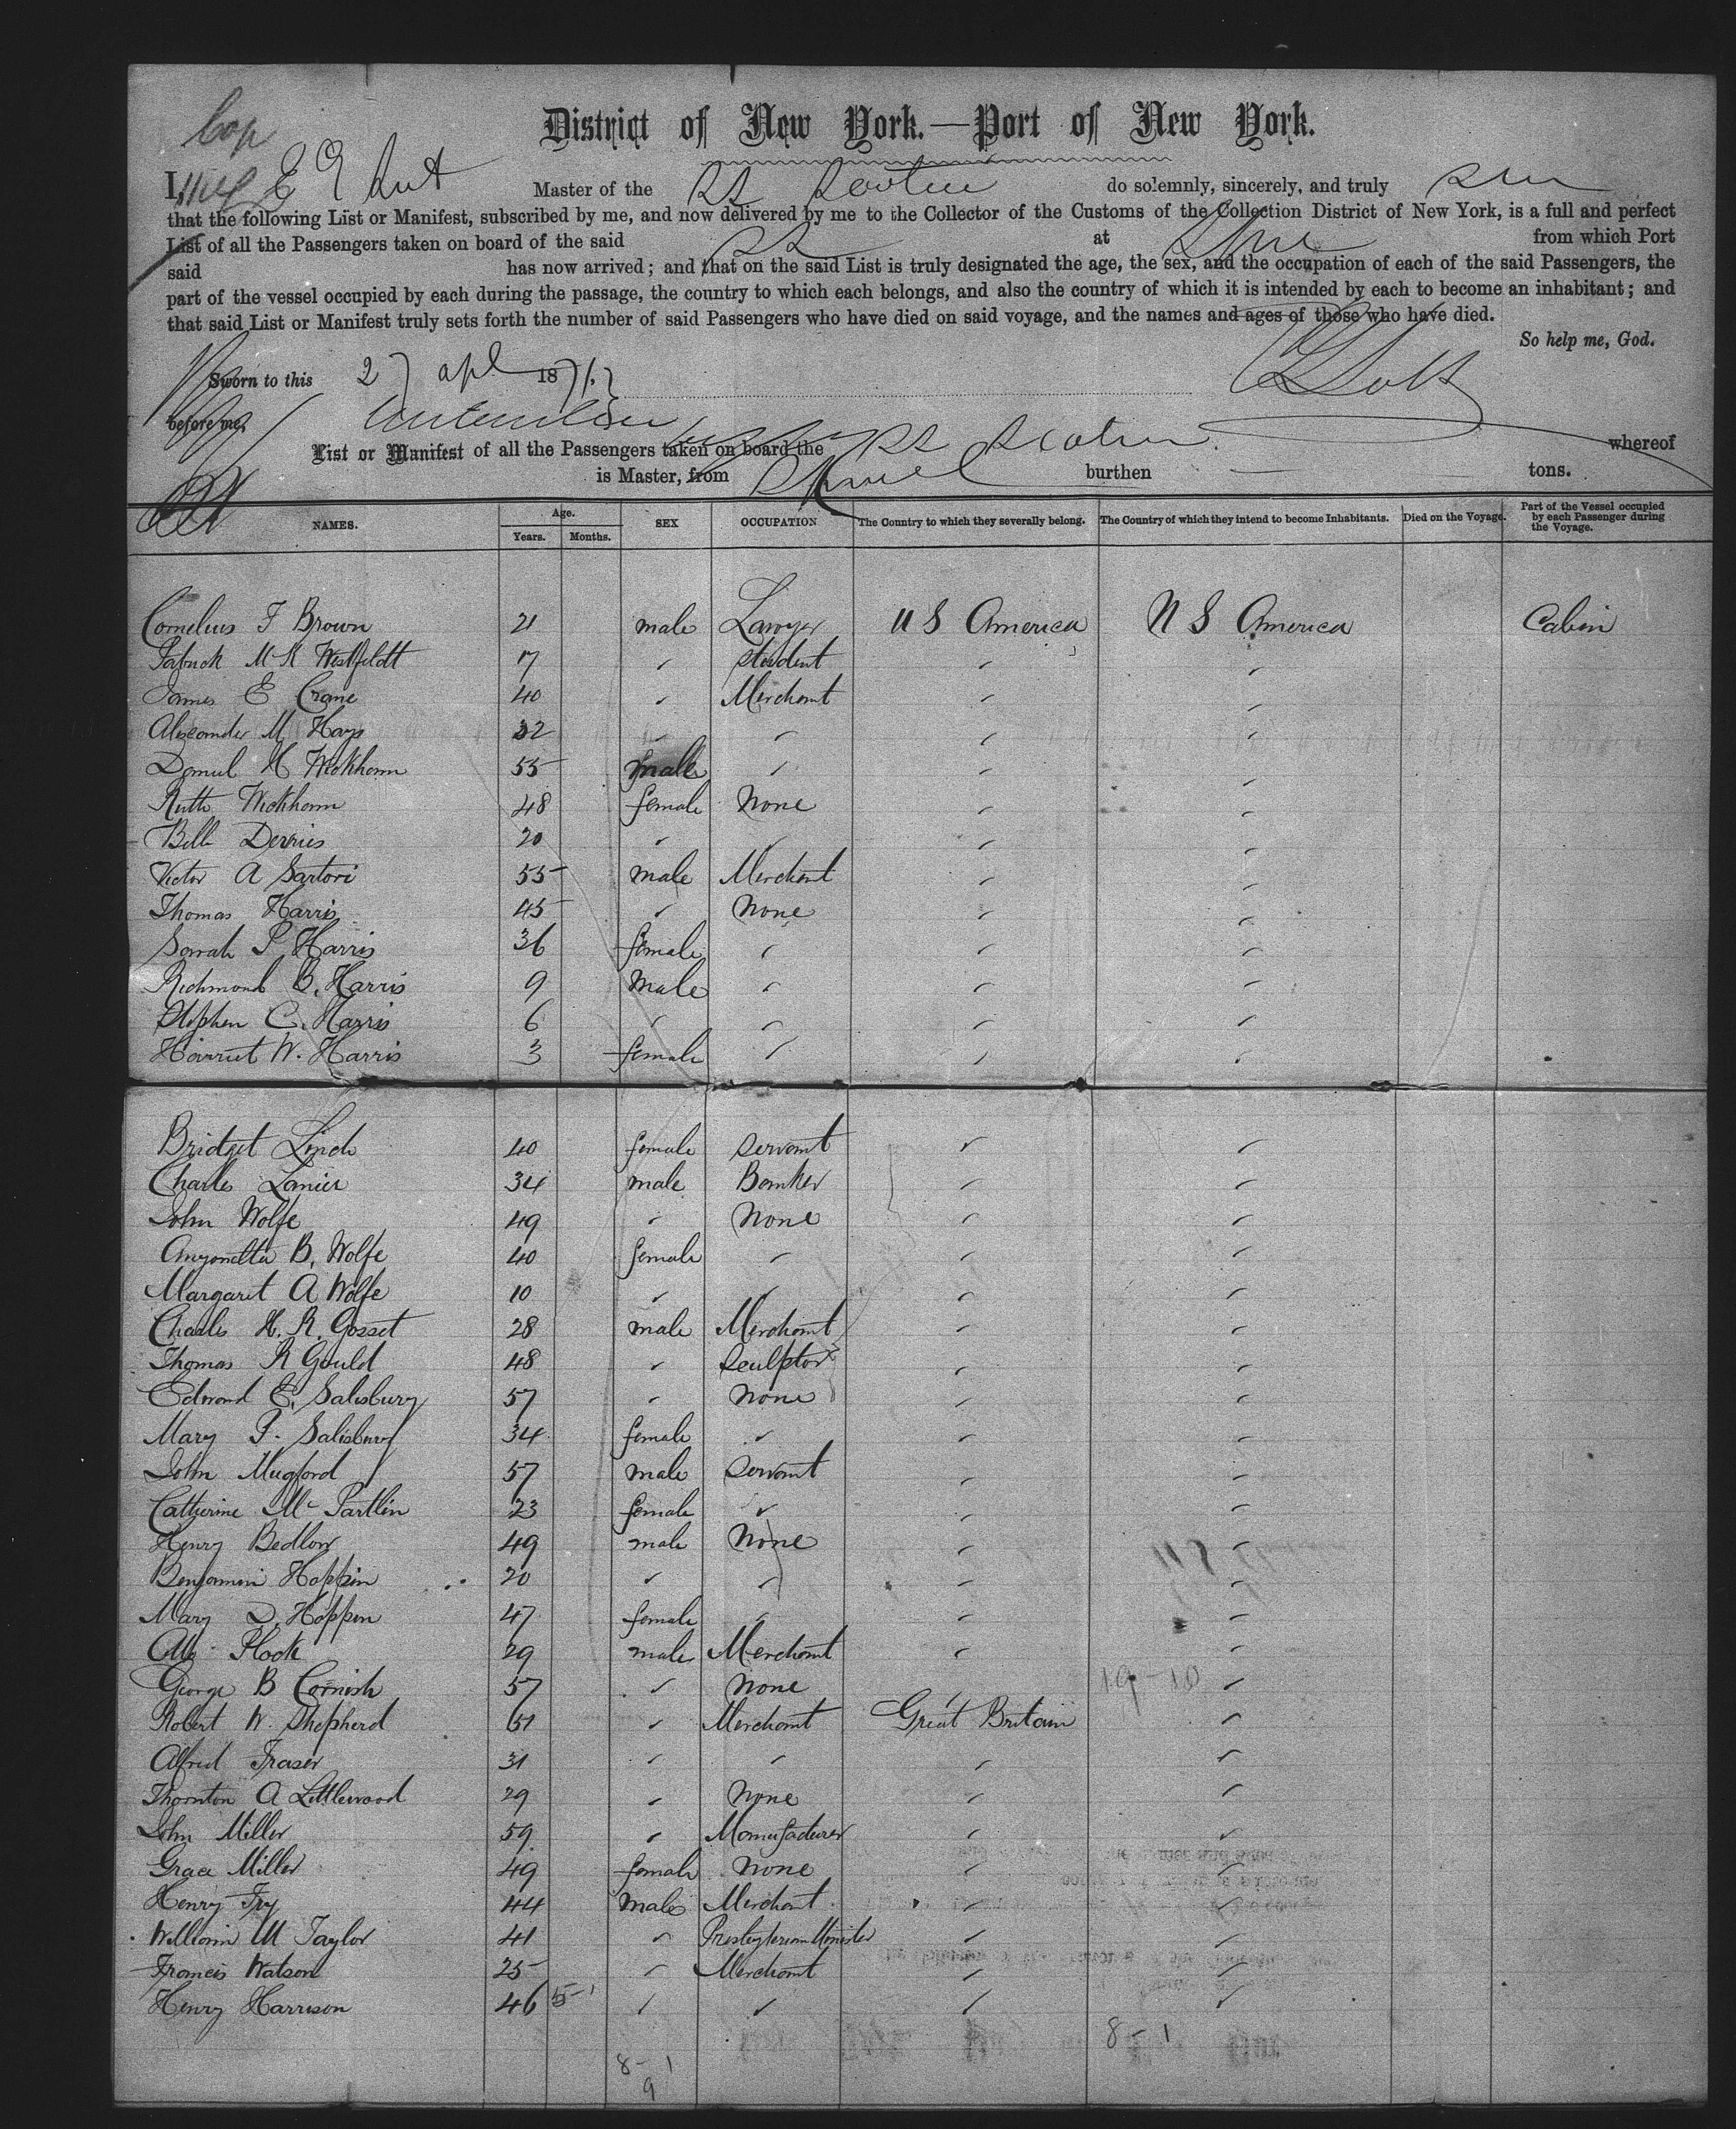 District of New York.—Port of New York.
I, Master of the SS Scotia do solemnly, sincerely, and truly
that the following List or Manifest, subscribed by me, and now delivered by me to the Collector of the Customs of the Collection District of New York, is a full and perfect
List of all the Passengers taken on board of the said SS at from which Port
said has now arrived; and that on the said List is truly designated the age, the sex, and the occupation of each of the said Passengers, the
part of the vessel occupied by each during the passage, the country to which each belongs, and also the country of which it is intended by each to become an inhabitant; and
that said List or Manifest truly sets forth the number of said Passengers who have died on said voyage, and the names and ages of those who have died.
So help me, God.
Sworn to this 27 apl 1871.
before me,
List or Manifest of all the Passengers taken on board the SS Scotia whereof
is Master, from burthen — tons.
NAMES. Age. Years. Months. SEX OCCUPATION The Country to which they severally belong. The Country of which they intend to become Inhabitants. Died on the Voyage. Part of the Vessel occupied by each Passenger during the Voyage.
Cornelius F Brown 21 male Lawyer U S America U S America Cabin
Patrick McK Westfeldt 17 " student " "
James E Crane 40 " Merchant " "
Alexander M Hays 32 " " " "
Daniel H Wickham 55 male " " "
Ruth Wickham 48 female None " "
Bell 20 " " " "
Victor A Sartori 55 male Merchant " "
Thomas Harris 45 " None " "
Sarah P Harris 36 female " " "
Richmond B. Harris 9 Male " " "
Stephen C. Harris 6 " " " "
Harriet W. Harris 3 female " " "
Bridget Linch 40 female servant " "
Charles Lanier 34 male Banker " "
John Wolfe 49 " None " "
B. Wolfe 40 female " " "
Margaret A Wolfe 10 " " " "
Charles H. R. Gosset 28 male Merchant " "
Thomas R Gould 48 " Sculptor " "
Edward E. Salisbury 57 " None " "
Mary P. Salisbury 34 female " " "
John Mugford 57 male Servant " "
Catherine Mc Partlin 23 female " " "
Henry Bedlow 49 male None " "
Benjamin Hoppin 20 " " " "
Mary D. Hoppin 47 female " " "
29 male Merchant " "
George B Cornish 57 " None " "
Robert W. Shepherd 51 " Merchant Great Britain "
Alfred Fraser 31 " " " "
Thornton A Littlewood 29 " None " "
John Miller 59 " Manufacturer " "
Grace Miller 49 female None " "
Henry Fry 44 Male Merchant " "
William M Taylor 41 " Presbyterian Minister " "
Francis Watson 25 " Merchant " "
Henry Harrison 46 " " " "
8-1
8-1
9